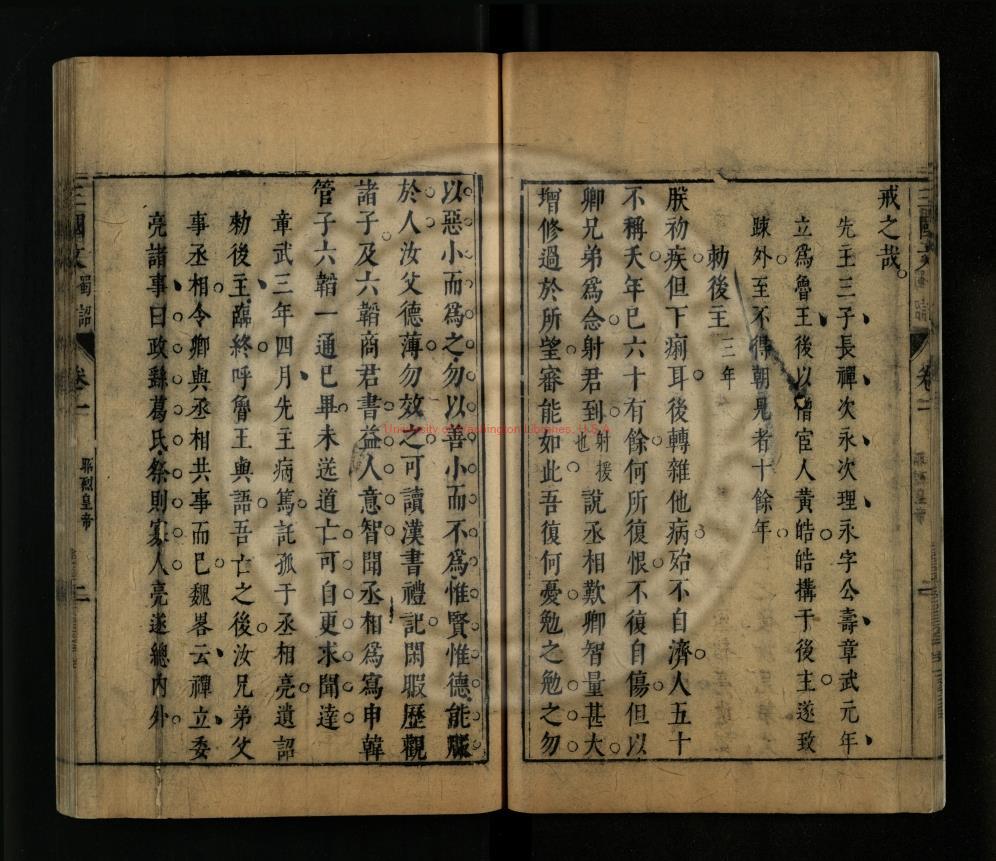 戒之哉
先主三子長禪次永次理永字公壽章武元年
立爲魯王後以憎宦人黃皓皓搆于後主遂致
踈外至不得朝見者十餘年
勑後主三年
朕初疾但下痢耳後轉雜他病殆不自濟人五十
不稱夭年已六十有餘何所復恨不復自傷但以
卿兄弟爲念射君到射援也說丞相歎卿智量甚大
增修過於所望審能如此吾復何憂勉之勉之勿
以惡小而爲之勿以善小而不爲惟賢惟德能服
於人汝父德薄勿效之可讀漢書禮記閑暇歷觀
諸子及六韜商君書益人意智聞丞相爲寫申韓
管子六韜一通巳畢未送道亡可自更求聞達
章武三年四月先主病篤託孤于丞相亮遺詔
勑後主臨終呼魯王與語吾亡之後汝兄弟父
事丞相令卿與丞相共事而巳魏畧云禪立委
亮諸事曰政繇葛氏祭則寡人亮遂總內外
三國文 蜀詔 卷一 昭烈皇帝 二
University of Washington Libraries, U.S.A.